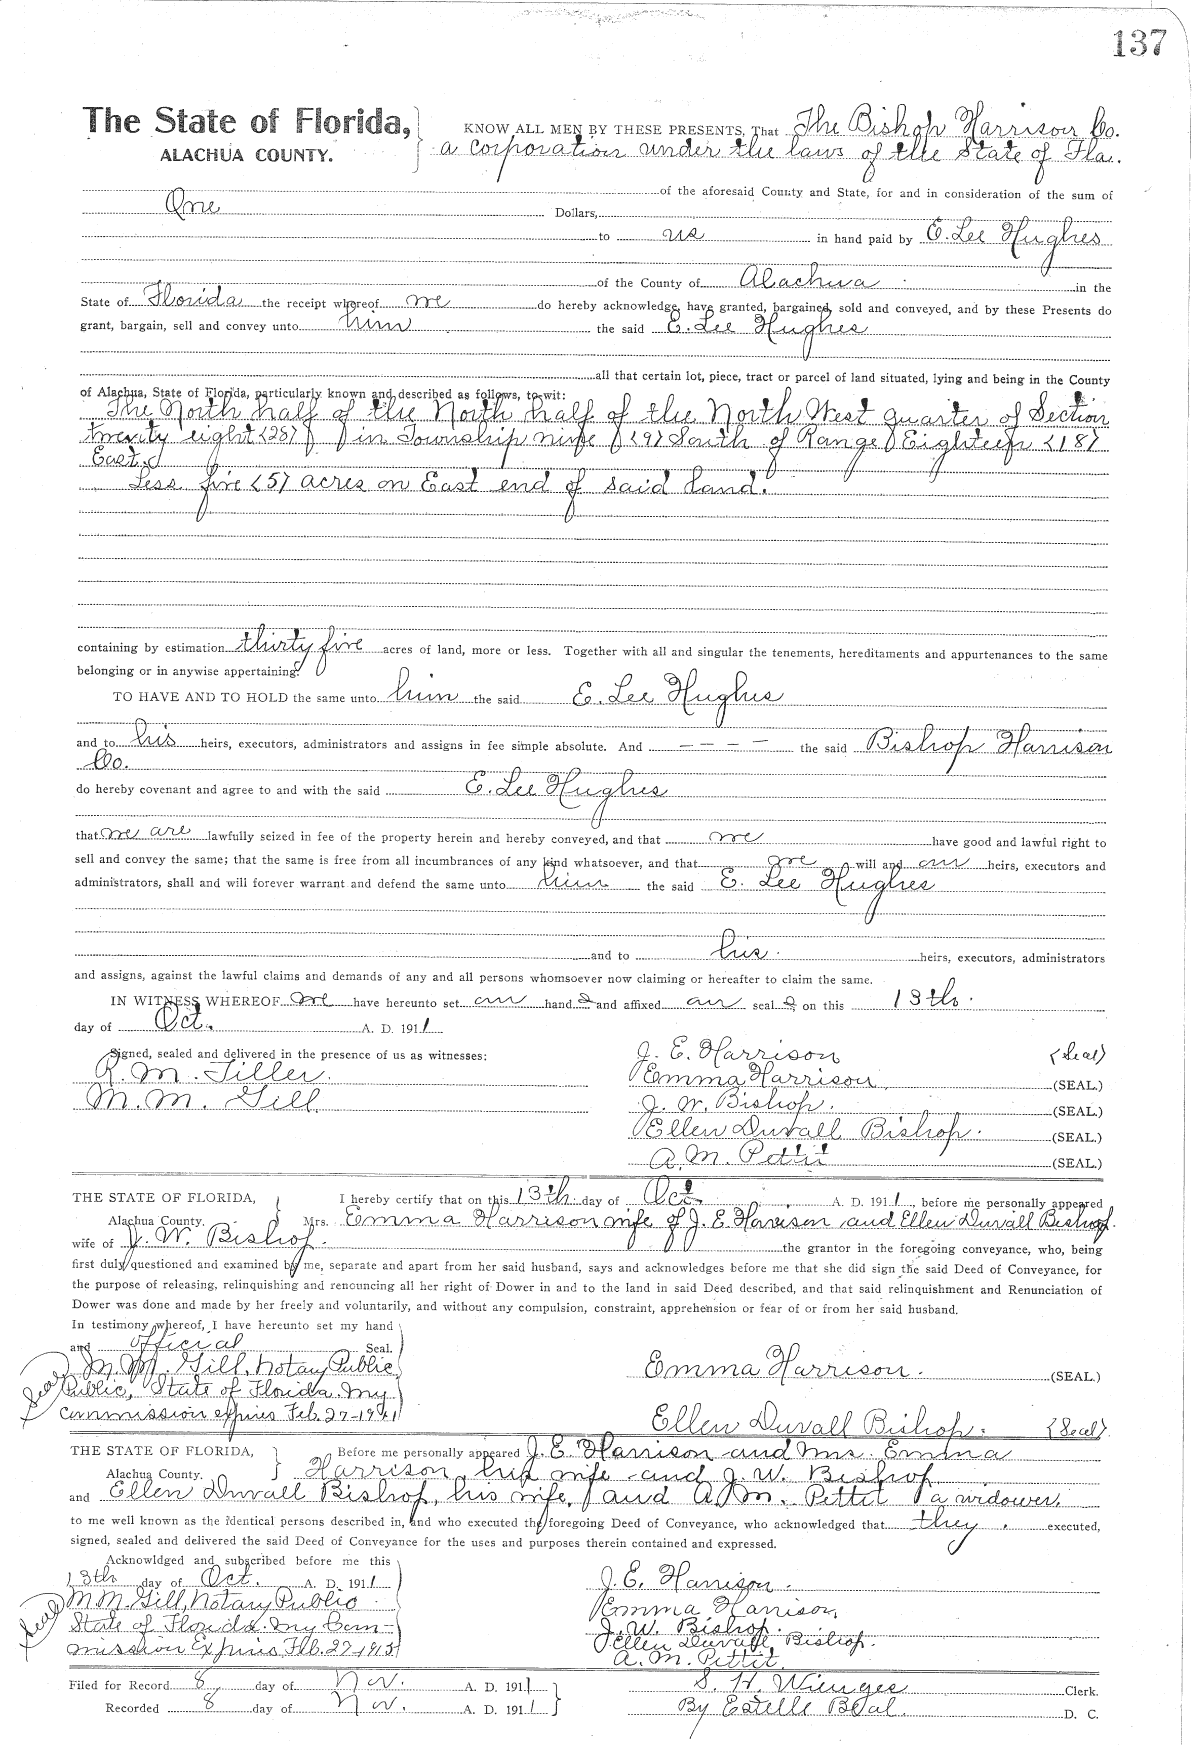 137
The State of Florida, KNOW ALL MEN BY THESE PRESENTS, That The Bishop Harrison Co.
ALACHUA COUNTY. a corporation under the laws of the State of Fla.
of the aforesaid County and State, for and in consideration of the sum of
One Dollars,
to us in hand paid by E. Lee Hughes
of the County of Alachua in the
State of Florida the receipt whereof we do hereby acknowledge, have granted, bargained, sold and conveyed, and by these Presents do
grant, bargain, sell and convey unto him the said E. Lee Hughes
all that certain lot, piece, tract or parcel of land situated, lying and being in the County
of Alachua, State of Florida, particularly known and described as follows, to-wit:
The North half of the North half of the North West quarter of Section
twenty eight (28) in Township nine (9) South of Range Eighteen (18)
East.
Less five (5) acres on East end of said land.
containing by estimation thirty five acres of land, more or less. Together with all and singular the tenements, hereditaments and appurtenances to the same
belonging or in anywise appertaining.
TO HAVE AND TO HOLD the same unto him the said E. Lee Hughes
and to his heirs, executors, administrators and assigns in fee simple absolute. And — — — — the said Bishop Harrison
Co.
do hereby covenant and agree to and with the said E. Lee Hughes
that we are lawfully seized in fee of the property herein and hereby conveyed, and that we have good and lawful right to
sell and convey the same; that the same is free from all incumbrances of any kind whatsoever, and that we will and our heirs, executors and
administrators, shall and will forever warrant and defend the same unto him the said E. Lee Hughes
and to his heirs, executors, administrators
and assigns, against the lawful claims and demands of any and all persons whomsoever now claiming or hereafter to claim the same.
IN WITNESS WHEREOF we have hereunto set our hand s and affixed our seal s on this 13th
day of Oct. A. D. 1911
Signed, sealed and delivered in the presence of us as witnesses: J. E. Harrison (Seal)
R. M. Tiller. Emma Harrison (SEAL.)
M. M. Gill J. W. Bishop. (SEAL.)
Ellen Duvall Bishop. (SEAL.)
A. M. Pettit (SEAL.)
THE STATE OF FLORIDA, I hereby certify that on this 13th day of Oct. A. D. 1911, before me personally appeared
Alachua County. Mrs. Emma Harrison wife of J. E. Harrison and Ellen Duvall Bishop
wife of J. W. Bishop. the grantor in the foregoing conveyance, who, being
first duly questioned and examined by me, separate and apart from her said husband, says and acknowledges before me that she did sign the said Deed of Conveyance, for
the purpose of releasing, relinquishing and renouncing all her right of Dower in and to the land in said Deed described, and that said relinquishment and Renunciation of
Dower was done and made by her freely and voluntarily, and without any compulsion, constraint, apprehension or fear of or from her said husband.
In testimony whereof, I have hereunto set my hand
and official Seal.
M. M. Gill, Notary Public Emma Harrison. (SEAL.)
Seal Public, State of Florida. My
commission expires Feb. 27-1911
Ellen Duvall Bishop. (Seal)
THE STATE OF FLORIDA, Before me personally appeared J. E. Harrison and Mrs. Emma
Alachua County. Harrison, his wife and J. W. Bishop
and Ellen Duvall Bishop, his wife, and A. M. Pettit a widower,
to me well known as the identical persons described in, and who executed the foregoing Deed of Conveyance, who acknowledged that they executed,
signed, sealed and delivered the said Deed of Conveyance for the uses and purposes therein contained and expressed.
Acknowldged and subscribed before me this
13th day of Oct. A. D. 1911 J. E. Harrison.
M. M. Gill, Notary Public Emma Harrison,
Seal State of Florida. My Com- J. W. Bishop.
mission Expires Feb. 27-1915 Ellen Duvall Bishop.
A. M. Pettit
Filed for Record 8 day of Nov. A. D. 1911 S. H. Wienges Clerk.
Recorded 8 day of Nov. A. D. 1911 By Estelle Beal. D. C.